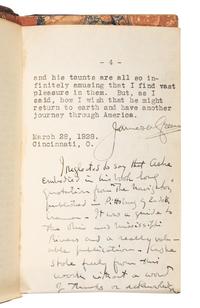 - 4 -
and his taunts are all so in-
finitely amusing that I find vast
pleasure in them. But, as I
said, how I wish that he might
return to earth and have another
journey through America.
March 28, 1928.
Cincinnati, O.
I neglected to say that Ashe
embodied in his book long
quotations from The Navigator,
published in Pittsburg by Zadok
Cramer. It was a guide to
the Ohio and Mississippi
Rivers and a really valu-
able publication. Ashe
stole freely from this
work without a word
of thanks or